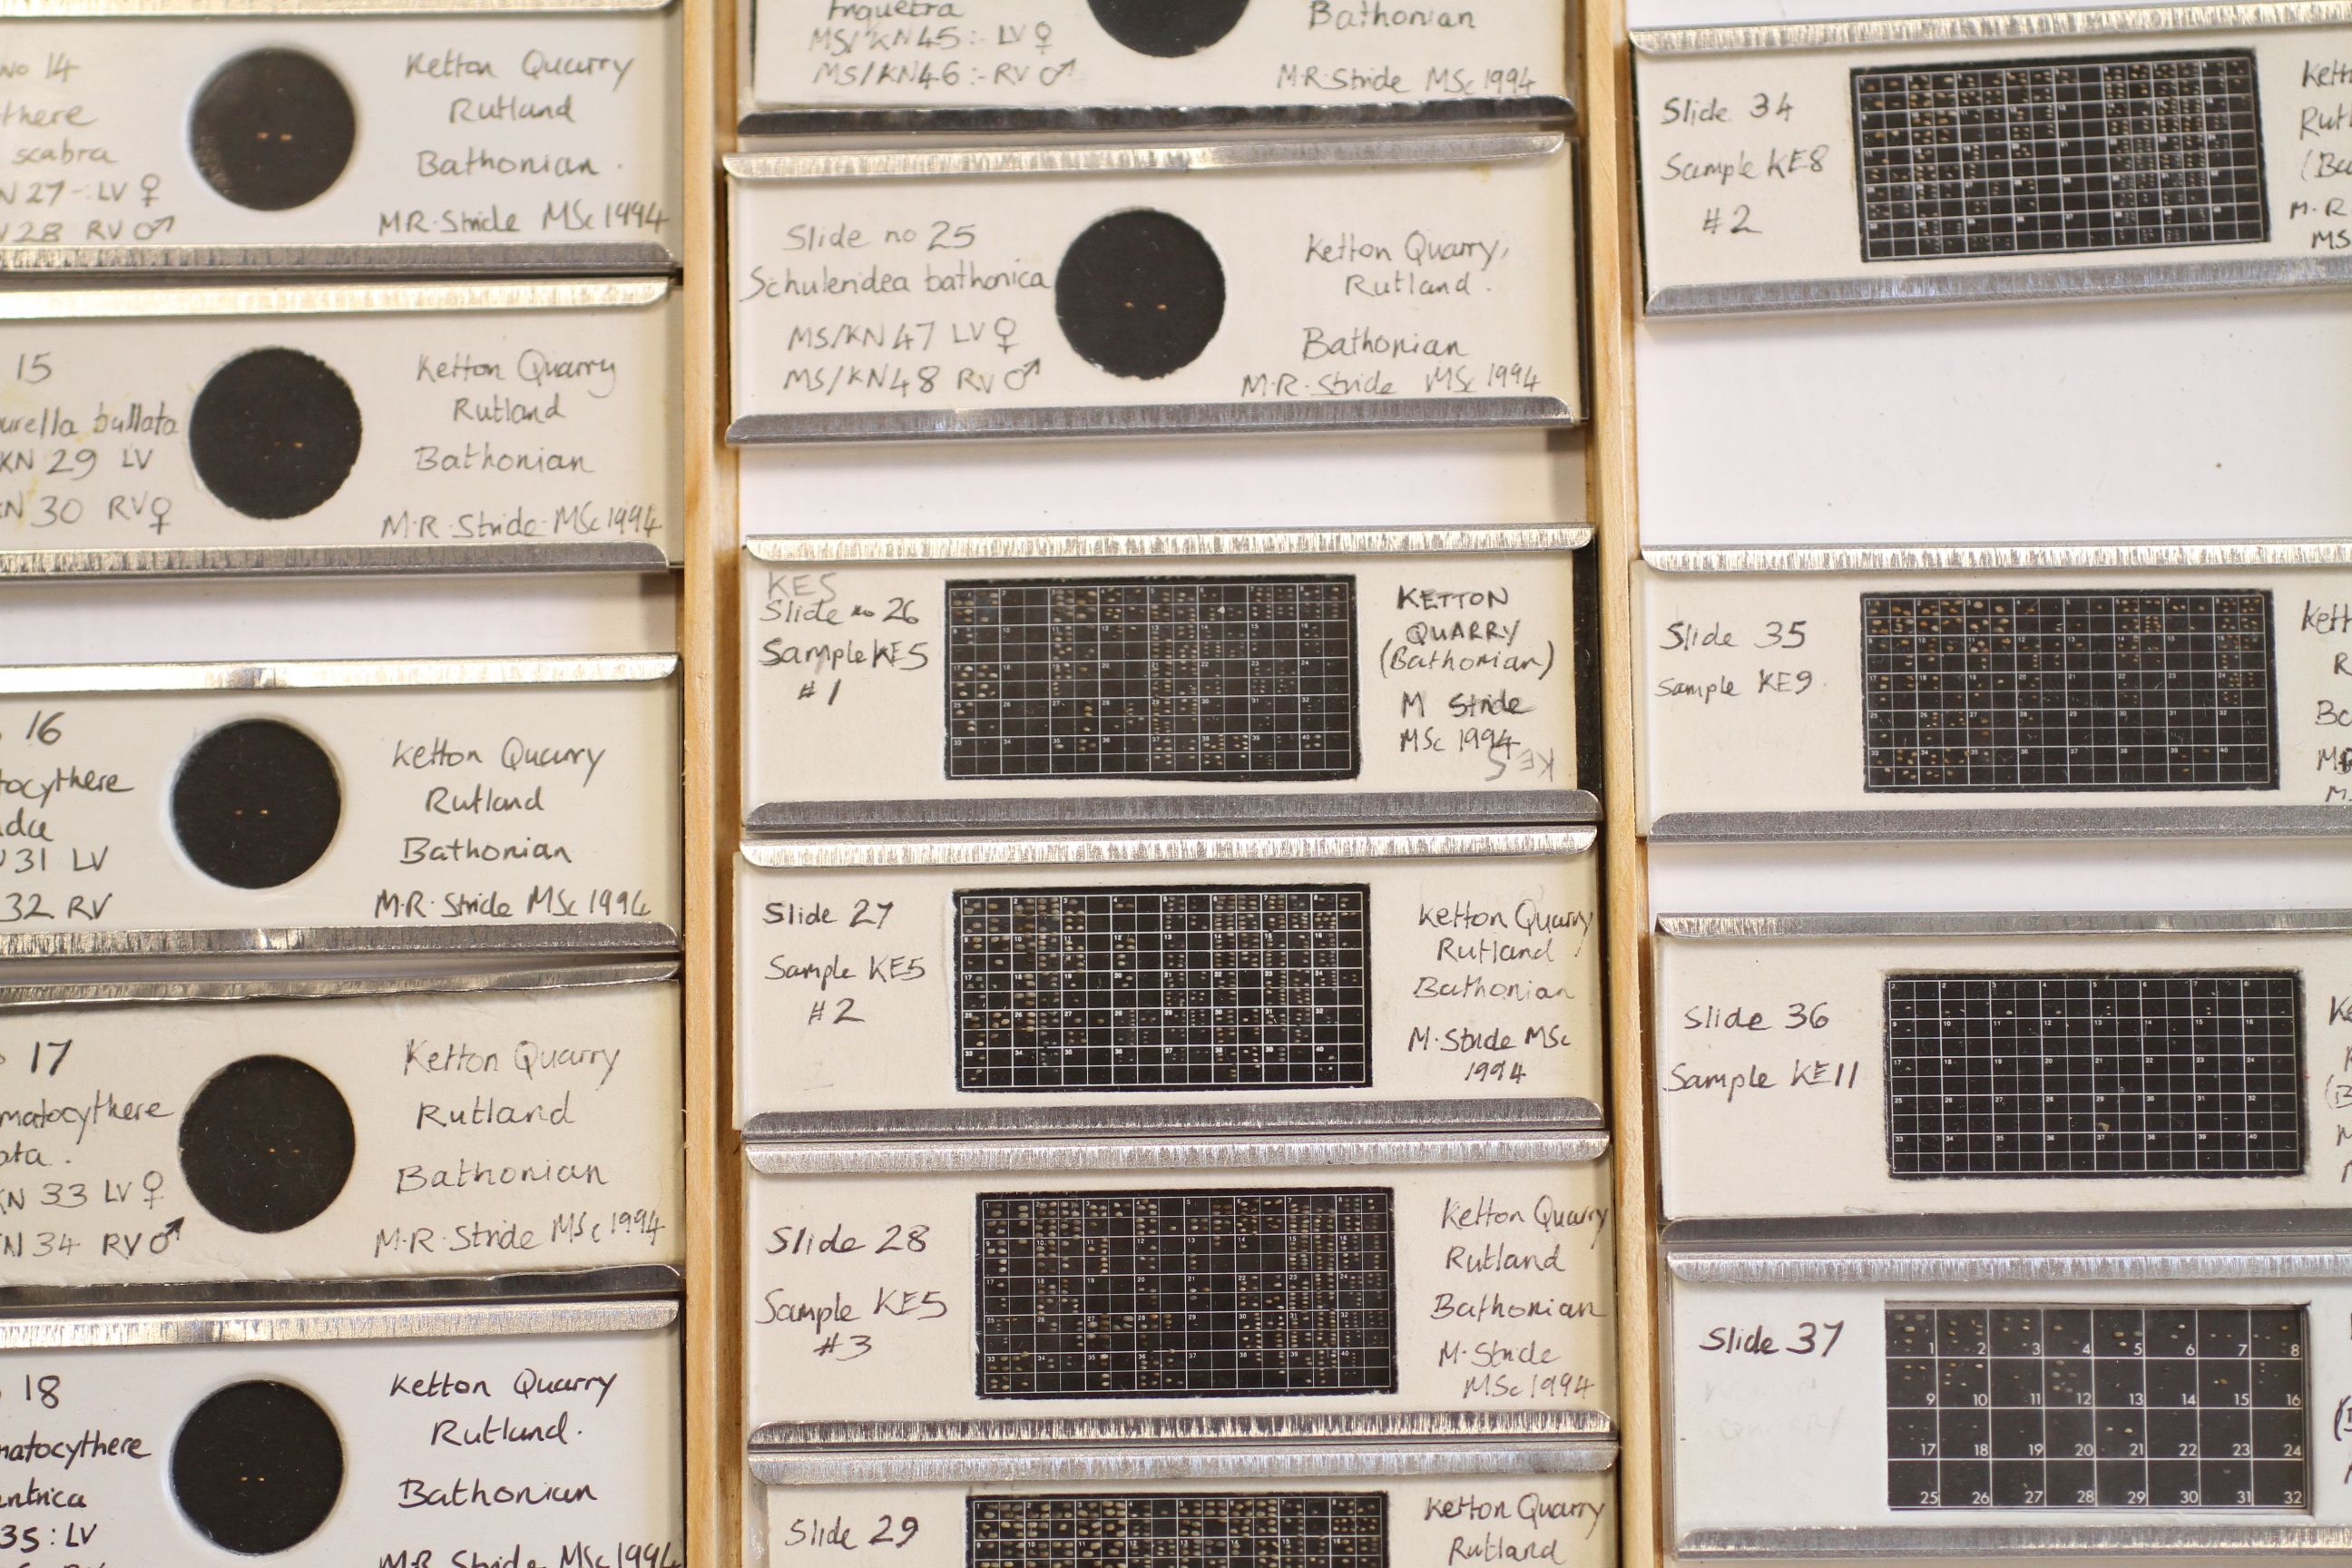 no 14
there
scabra
N 27-: LV ♀
28 RV ♂
Ketton Quarry
Rutland
Bathonian.
M.R. Stride MSc 1994
15
urella bullata
KN 29 LV
KN 30 RV ♀
Ketton Quarry
Rutland
Bathonian
M.R. Stride MSc 1994
16
tocythere
31 LV
32 RV
Ketton Quarry
Rutland
Bathonian
M.R. Stride MSc 1994
17
matocythere
KN 33 LV ♀
N 34 RV ♂
Ketton Quarry
Rutland
Bathonian
M.R. Stride MSc 1994
18
matocythere
entrica
35: LV
Ketton Quarry
Rutland.
Bathonian
M.R. Stride MSc 1994
triquetra
MS/KN45:- LV ♀
MS/KN46:- RV ♂
Bathonian
M.R. Stride MSc 1994
Slide no 25
Schuleridea bathonica
MS/KN47 LV ♀
MS/KN48 RV ♂
Ketton Quarry,
Rutland.
Bathonian
M.R. Stride MSc 1994
KE5
Slide no 26
Sample KE5
#1
KETTON
QUARRY
(Bathonian)
M Stride
MSc 1994
KE5
Slide 27
Sample KE5
#2
Ketton Quarry
Rutland
Bathonian
M. Stride MSc
1994
Slide 28
Sample KE5
#3
Ketton Quarry
Rutland
Bathonian
M. Stride
MSc 1994
Slide 29
Ketton Quarry
Rutland
Slide 34
Sample KE8
#2
Kett
Rutl
(Ba
M.R
MS
Slide 35
Sample KE9
Kett
R
Slide 36
Sample KE11
Slide 37
1 2 3 4 5 6 7 8
9 10 11 12 13 14 15 16
17 18 19 20 21 22 23 24
25 26 27 28 29 30 31 32